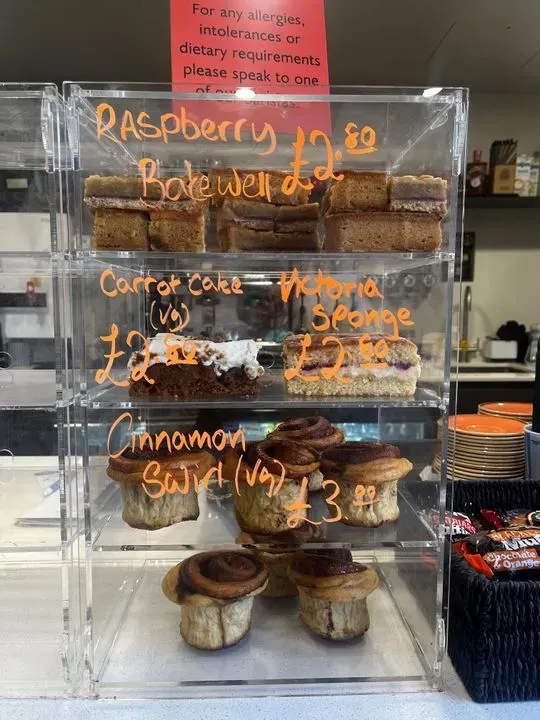 For any allergies,
intolerances or
dietary requirements
please speak to one
of our baristas.
RAspberry
Bakewell £2.80
Carrot cake
(vg)
£2.80
Victoria
Sponge
£2.80
Cinnamon
Swirl (vg)
£3.00
Chocolate
& Orange